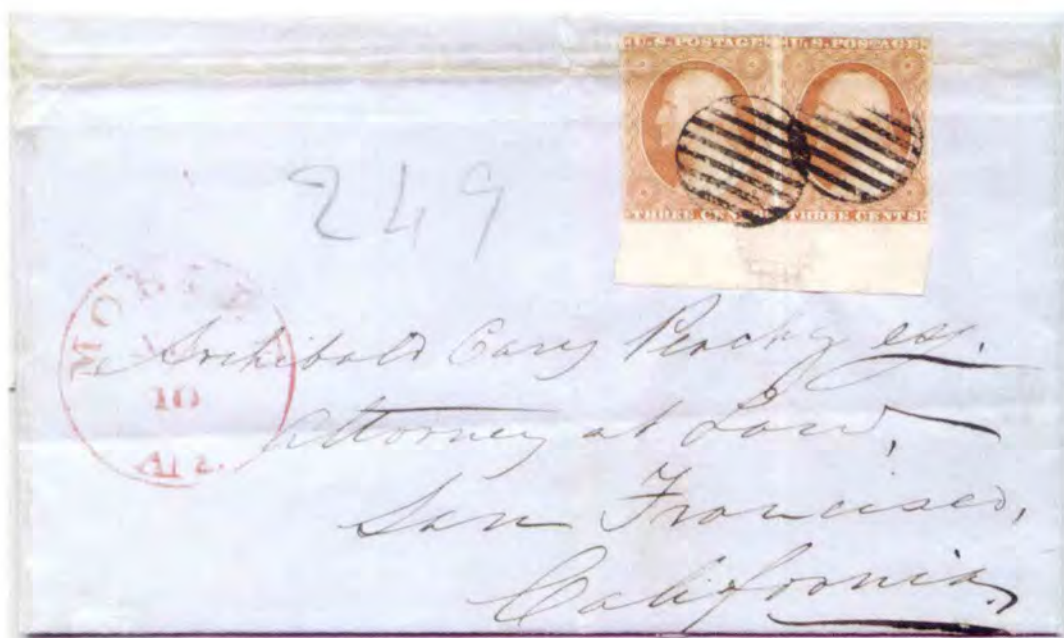 U.S. POSTAGE U.S. POSTAGE
THREE CENTS THREE CENTS
249
MOBILE
10
Archibald Cary Peachy esq.
Attorney at Law,
San Francisco,
California.